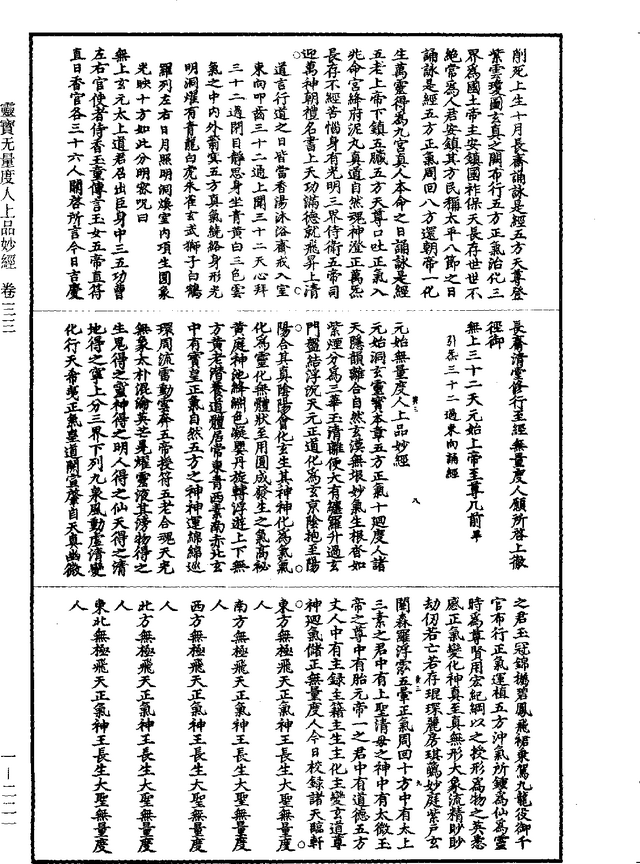 靈寶无量度人上品妙經 卷三三
一—二二一
削死上生十月長齋誦詠是經五方天尊登
紫雲瓊圖玄真之闕布行五方正氣治化三
界爲國土帝主安鎮國祚保天長存世世不
絶常爲人君安鎮其方民稱太平八節之日
誦詠是經五方正氣周回八方還朝帝一化
生萬靈得爲九宮真人本命之日誦詠是經
五老上帝下鎮五臟五方天尊口吐正氣入
兆命宮絳府泥丸真道自然現神澄正萬炁
長存不經苦惱身有光明三界侍衛五帝司
迎萬神朝禮名書上天功滿德就飛昇上清
道言行道之日皆當香湯沐浴齋戒入室
東向叩齒三十二通上聞三十二天心拜
三十二過閉目靜思身坐青黄白三色雲
氣之中内外蓊冥五方真氣繞絡身形光
明洞耀有青龍白虎朱雀玄武獅子白鶴
羅列左右日月照明洞煥室内項生圓象
光映十方如此分明密呪曰
無上玄元太上道君召出臣身中三五功曹
左右官使者侍香玉童傳言玉女五帝直符
直日香官各三十六人關啓所言今日吉慶
長齋清堂修行至經無量度人願所啓上徹
徑御
無上三十二天元始上帝至尊几前畢
引炁三十二過東向誦經
元始無量度人上品妙經
元始洞玄靈寶本章五方正氣十迴度人諸
天隱韻離合自然玄漠無垠妙氣生根杳如
紫煙分爲三華玉清離便大有纏羅升過玄
門盤結浮沉天元正道化爲玄京陰抱至陽
陽合其真陰陽會化玄生其神神化爲氣氣
化爲靈化無體狀至用圓成發生之氣高秘
黄庭神池絳淵色凝嬰丹旋轉浮遊上下無
方黄老潛養道體居常東青西素南赤北玄
中有寶皇正氣自然五方之神神運綿綿巡
環周流雷動雲奔五帝授符五老合魂天光
無象太朴混淪英芒晃耀靈液其滂物得之
生鬼得之靈神得之明人得之仙天得之清
地得之寧上分三界下列九泉風動虚清變
化行天希夷正氣皇道開宣肇自天真幽微
之君玉冠錦楊碧鳳飛裙乘駕九龍役御千
官布行正氣運植五方沖氣所鍾爲仙爲靈
時爲尊賢用宏紀綱以之授形爲物之英悉
感正氣變化神真至真無形大象流精眇眇
劫仞若亡若存琨琛麗房琪藹妙庭紫戶玄
闌森羅浮雲五暈正氣周回十方中有太上
三素之君中有上聖清母之神中有太微玉
帝之尊中有胎元帝一之君中有道德五方
丈人中有主録主籍主生主化主變玄道尊
神迴氣儲正無量度人今日校録諸天臨軒
東方無極飛天正氣神王長生大聖無量度
人
南方無極飛天正氣神王長生大聖無量度
人
西方無極飛天正氣神王長生大聖無量度
人
北方無極飛天正氣神王長生大聖無量度
人
東北無極飛天正氣神王長生大聖無量度
人